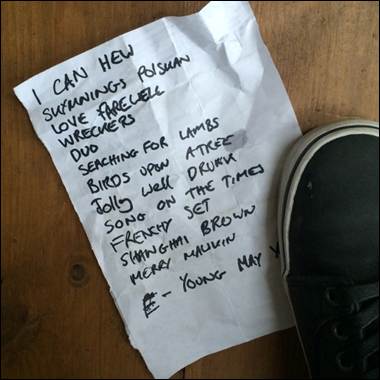 I CAN HEW
SKYMNINGS POLSKAN
LOVE FAREWELL
WRECKERS
DUO
SEACHING FOR LAMBS
BIRDS UPON A TREE
Jolly Well DRUNK
SONG ON THE TIMES
FRENCHY SET
SHANGHAI BROWN
MERRY MAWKIN
E - YOUNG MAY